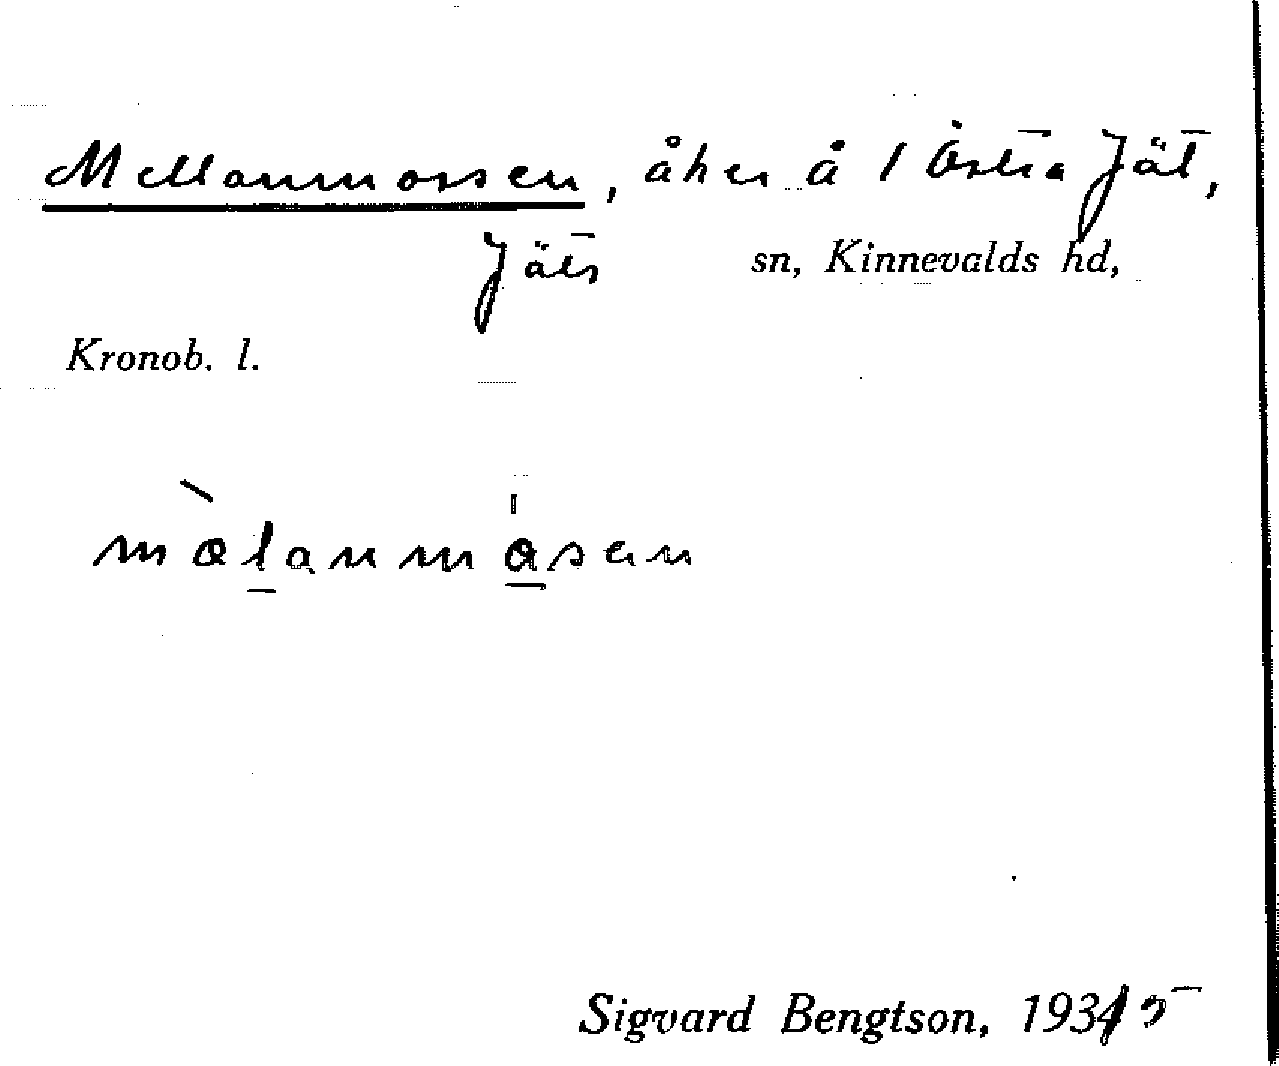 Mellanmossen, åker å 1 Östra Jät,
Jäts sn, Kinnevalds hd,
Kronob. l.
mælanmåsen
Sigvard Bengtson, 1935